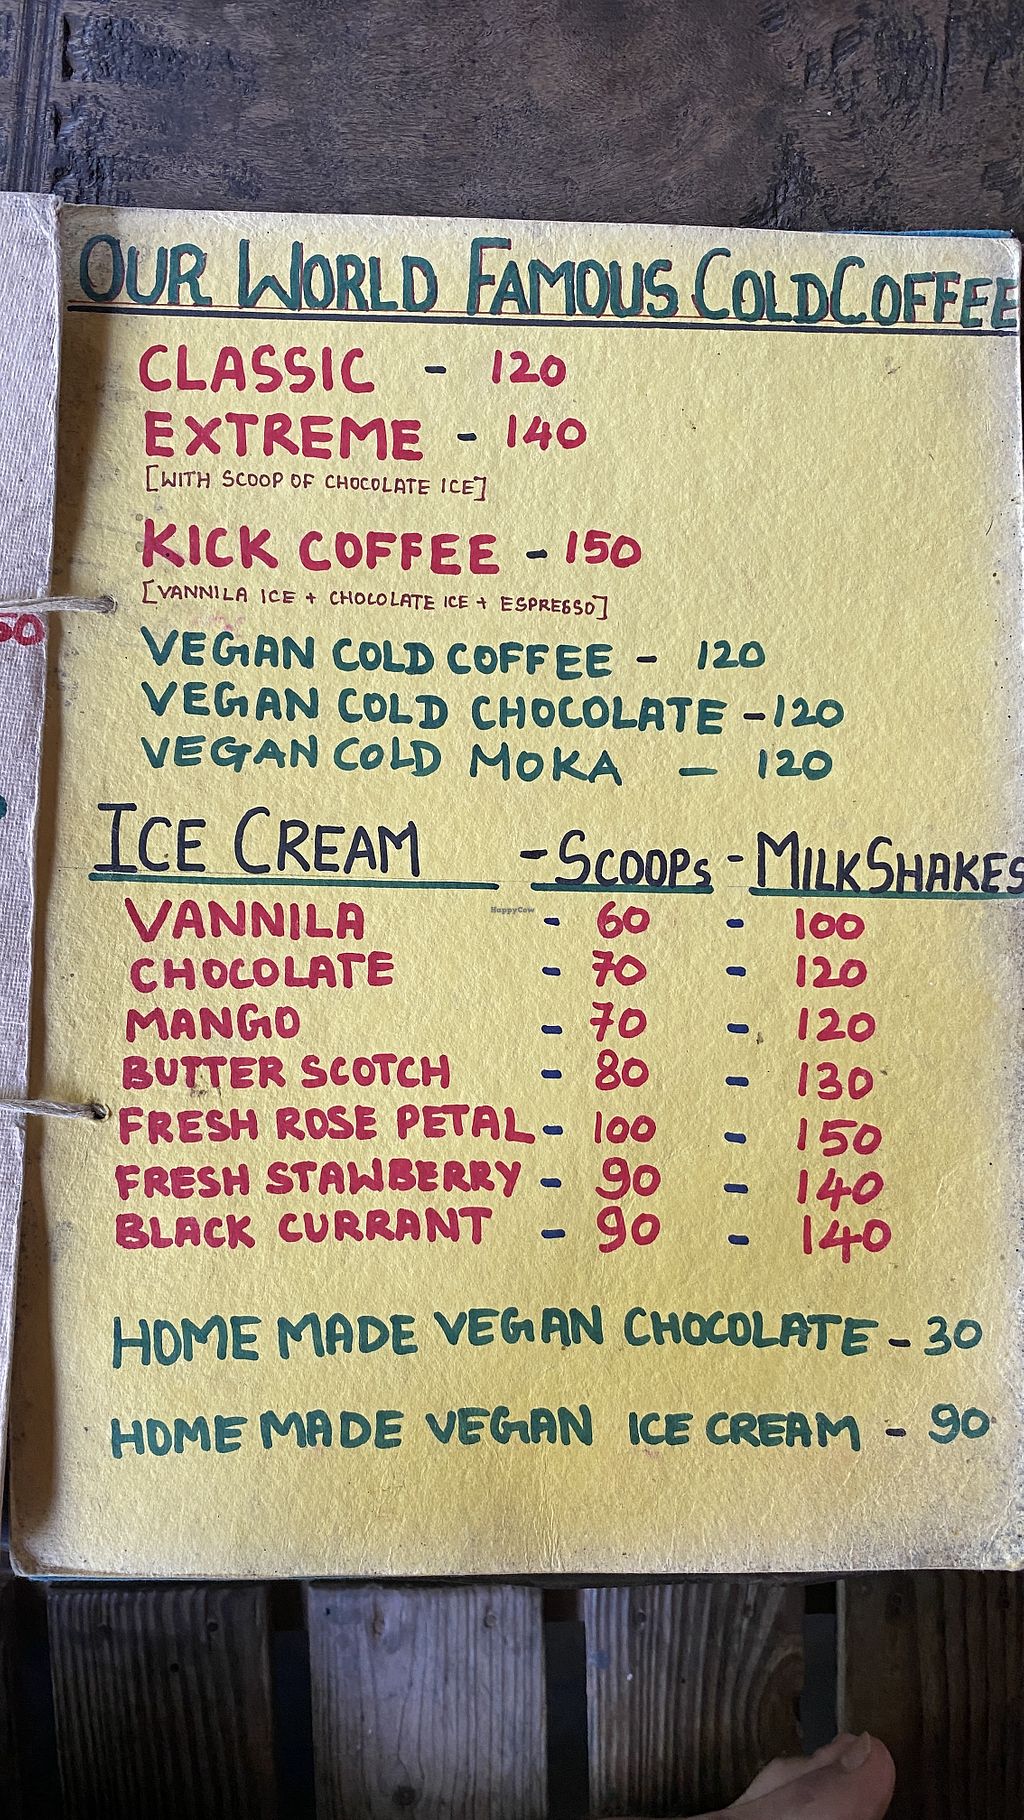 OUR WORLD FAMOUS COLDCOFFEE
CLASSIC - 120
EXTREME - 140
[WITH SCOOP OF CHOCOLATE ICE]
KICK COFFEE - 150
[VANNILA ICE + CHOCOLATE ICE + ESPRESSO]
50
VEGAN COLD COFFEE - 120
VEGAN COLD CHOCOLATE - 120
VEGAN COLD MOKA - 120
ICE CREAM - SCOOPS - MILKSHAKES
VANNILA - 60 - 100
HappyCow
CHOCOLATE - 70 - 120
MANGO - 70 - 120
BUTTER SCOTCH - 80 - 130
FRESH ROSE PETAL - 100 - 150
FRESH STAWBERRY - 90 - 140
BLACK CURRANT - 90 - 140
HOME MADE VEGAN CHOCOLATE - 30
HOME MADE VEGAN ICE CREAM - 90